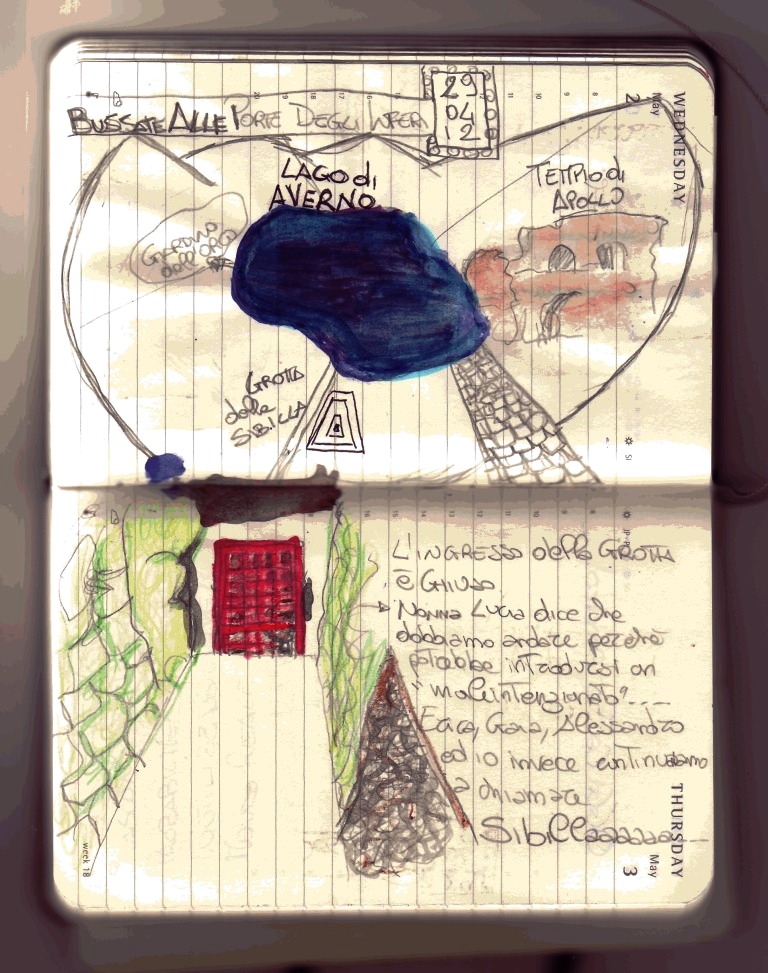 29
04
12
BUSSATE ALLE PORTE DEGLI INFERI
LAGO di
AVERNO
TEMPIO di
APOLLO
GIARDINO
dell'ORO
GROTTA
della
SIBILLA
WEDNESDAY
May
2
L'INGRESSO della GROTTA
è CHIUSO
Nonna Lucia dice che
dobbiamo andare perchè
potrebbe introdursi un
"malintenzionato"....
Erica, Gaia, Alessandro
ed io invece continuiamo
a chiamare
Sibillaaaaaaa...
THURSDAY
May
3
week 18